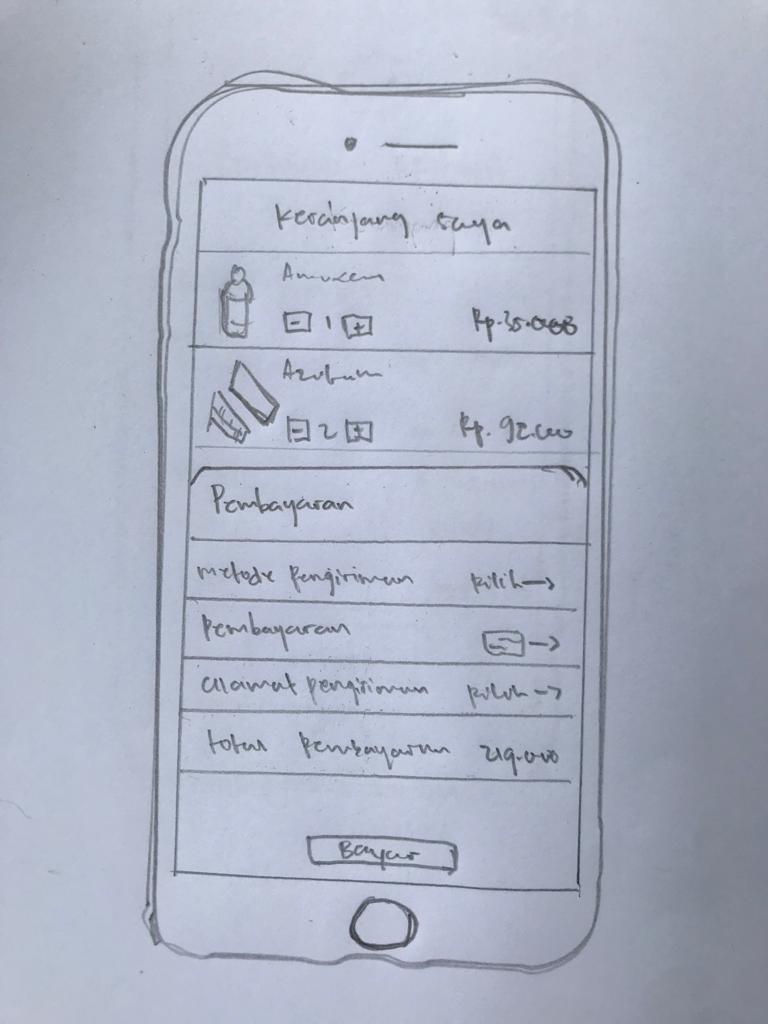 Keranjang saya
- 1 +
Rp. 35.000
- 2 +
Rp. 92.000
Pembayaran
metode pengiriman pilih →
Pembayaran →
alamat pengiriman pilih →
total pembayarun 219.000
Bayar